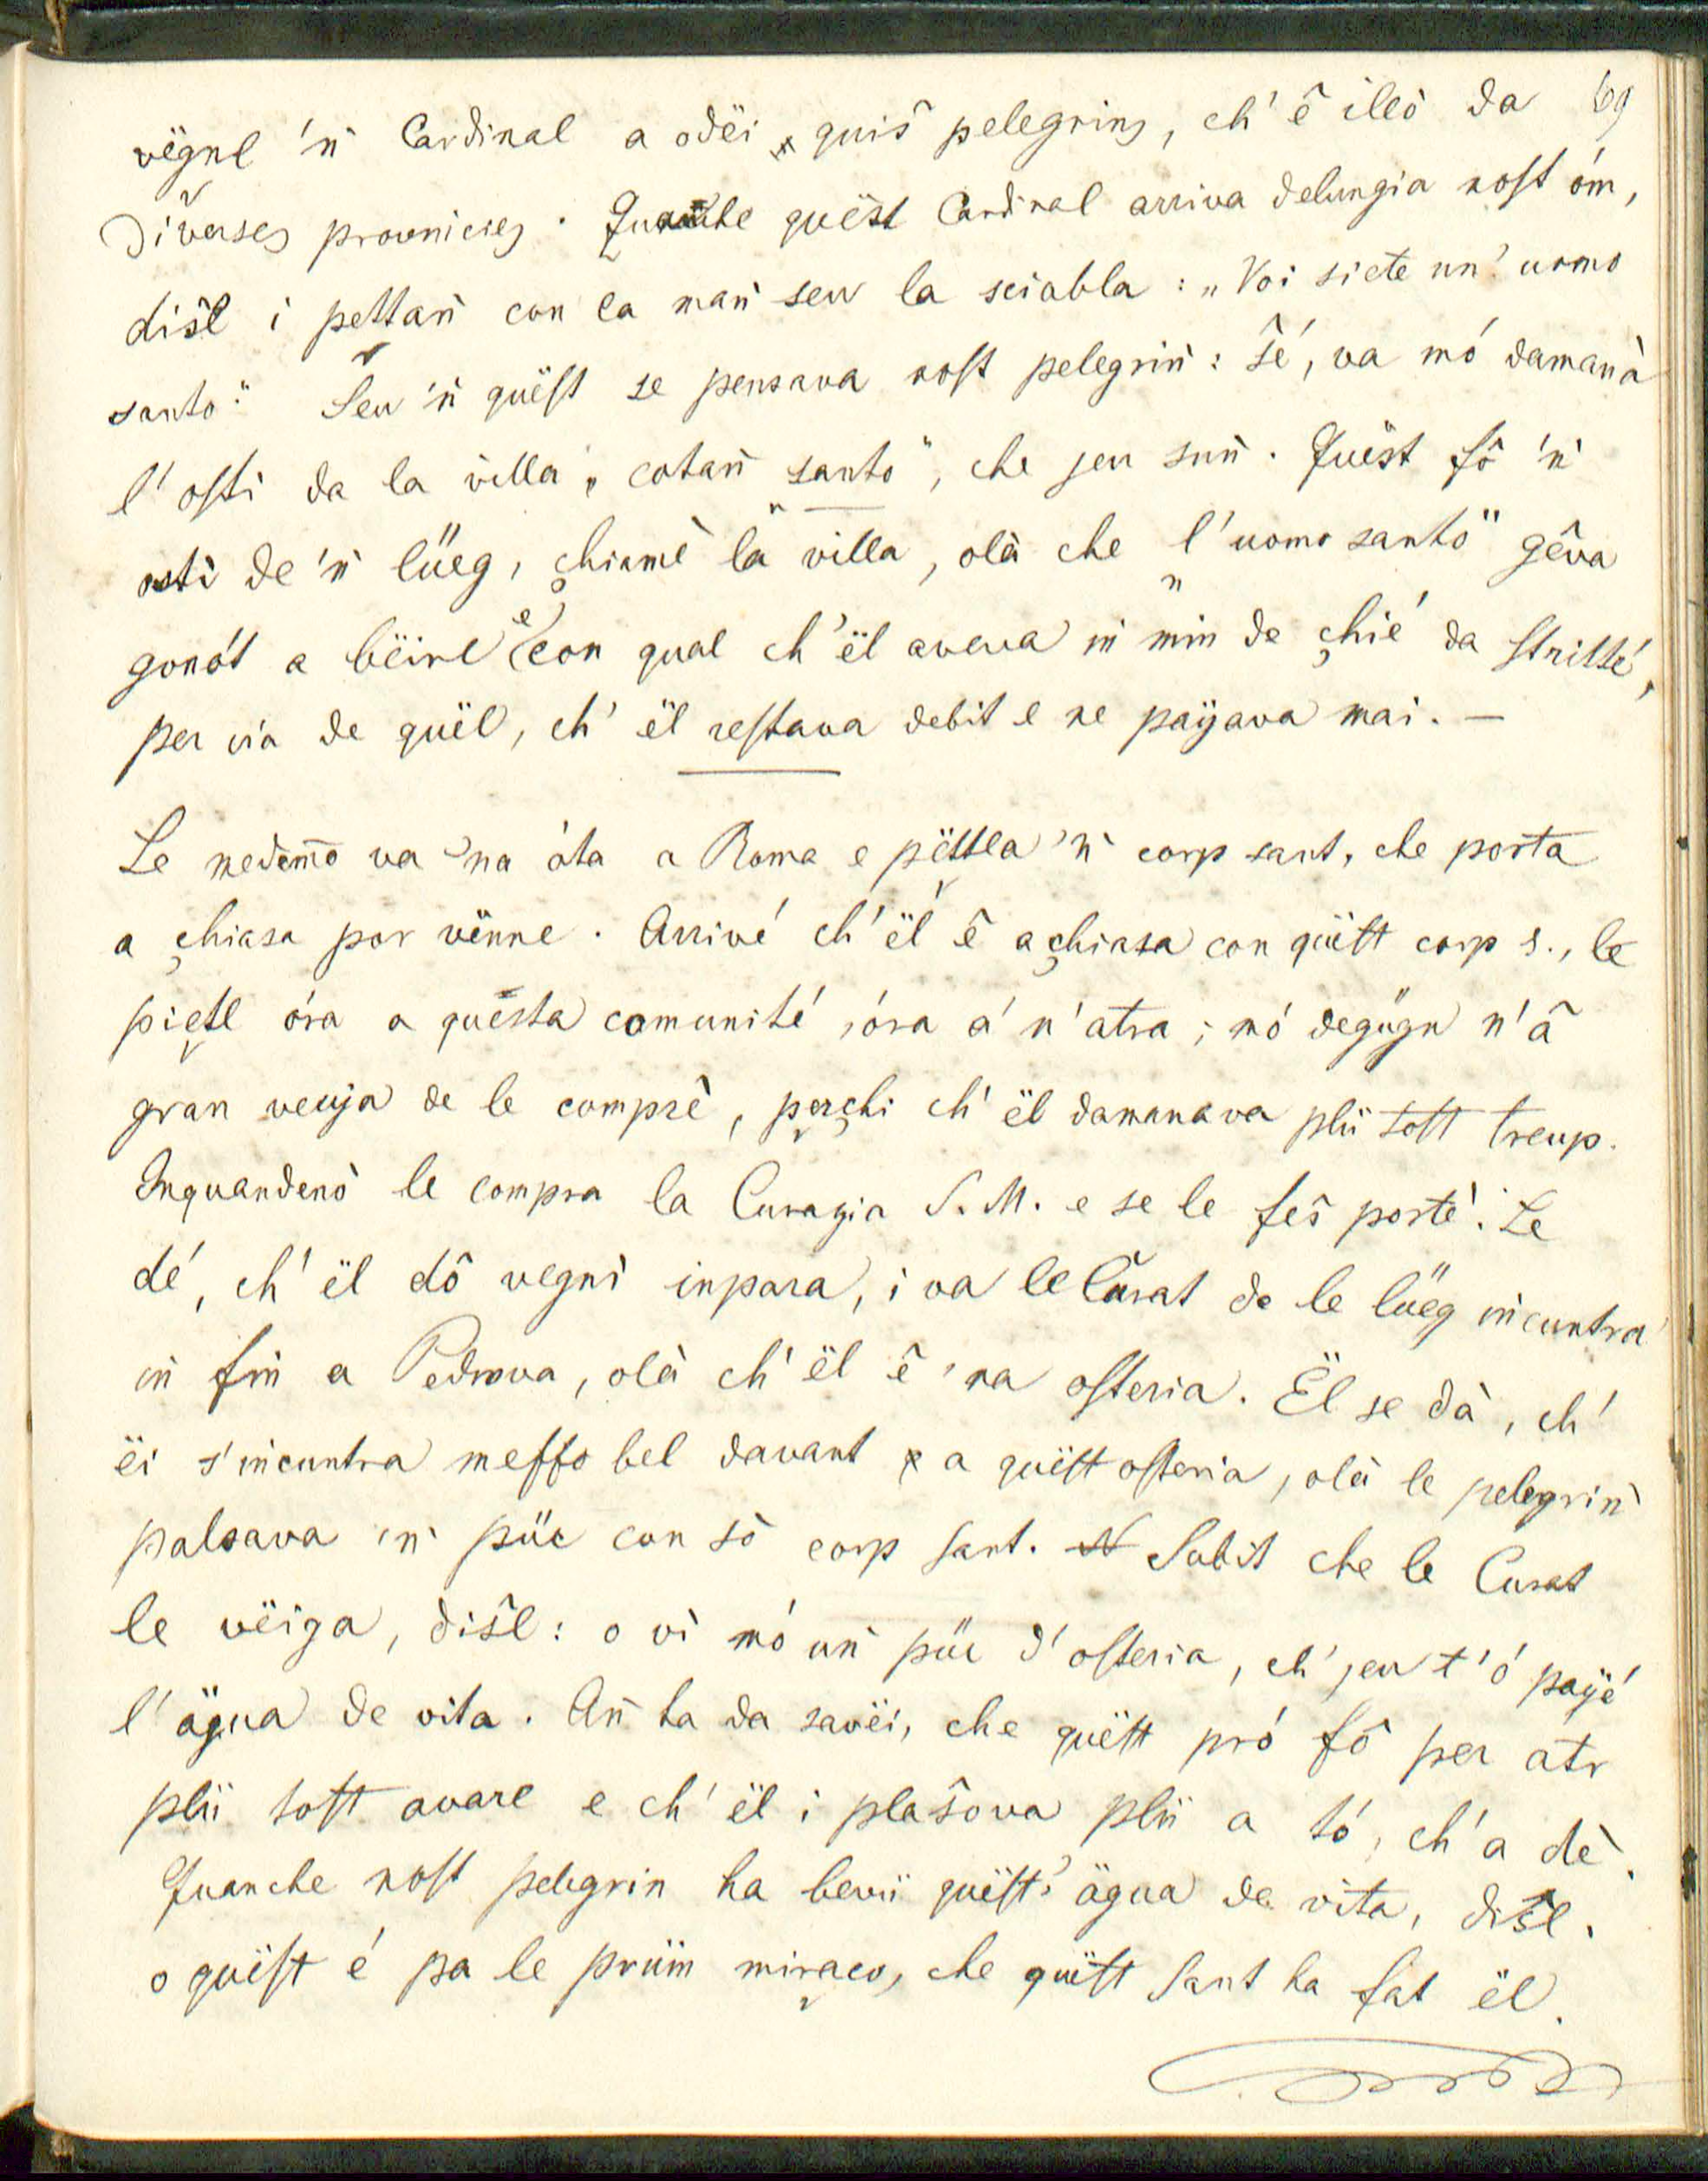 69
vëgnl 'ṅ Cardinal a odëi quiŝ pelegrins, ch' ê illò da
diverses provincies. Quanche quëst Cardinal arriva delungia nost óm,
diŝl i pettaṅ con la maṅ seu la sciabla: „Voi siete un' uomo
santo." Seu 'ṅ quëst se pensava nost pelegriṅ: ŝé, va mó damanà
l' osti da la villa, cotaṅ „santo", che jeu suṅ. Quëst fô 'ṅ
osti de 'ṅ lüeg, chiamè la villa, olà che „l' uomo santo" gêva
gonót a bëire e con qual ch' ël aveva iṅ min de chié da strittè,
per via de quël, ch' ël restava debit e ne payava mai. —
Le medemo va 'na óta a Roma e pëttla 'ṅ corp sant, che porta
a chiasa por vënne. Arrivé ch' ël ê a chiasa con quëst corp s., le
pietl óra a questa comunité, óra a' n' atra; mó degügn n' â
gran veuja de le comprè, perchi ch' ël damanava plü tost treup.
Inquandenò le compra la Curazia S. M. e se le feŝ portè. Le
dé, ch' ël dô vegnì inpara, i va le Curat de le lüeg iṅcuntra
iṅ fiṅ a Pedrova, olà ch' ël ê 'na osteria. Ël se dà, ch'
ëi s' iṅcuntra messo bel davant a quëst osteria, olà le pelegriṅ
palsava 'ṅ püc con sò corp sant. Subit che le Curat
le vëiga, diŝl: o vì mó uṅ püc d' osteria, ch' jeu t' ó payé
l' ägua de vita. Aṅ ha da savëi, che quëst pró fô per atr
plü tost avare e ch' ël i plaŝova plü a tó, ch' a dè.
Quanche nost pelegrin ha bevü quëst' ägua de vita, diŝl.
o quëst é pa le prüm miraco, che quëst Sant ha fat ël.